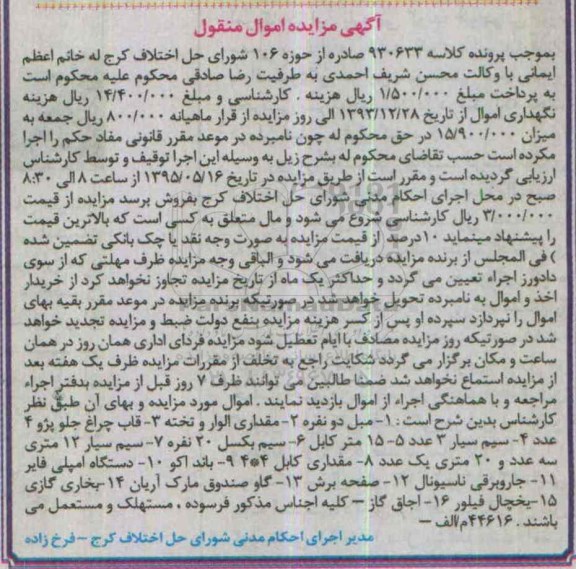 آگهی مزایده اموال منقول
بموجب پرونده کلاسه ۹۳۰۶۳۳ صادره از حوزه ۱۰۶ شورای حل اختلاف کرج له خانم اعظم
ایمانی با وکالت محسن شریف احمدی به طرفیت رضا صادقی محکوم علیه محکوم است
به پرداخت مبلغ ۱/۵۰۰/۰۰۰ ریال هزینه . کارشناسی و مبلغ ۱۴/۴۰۰/۰۰۰ ریال هزینه
نگهداری اموال از تاریخ ۱۳۹۳/۱۲/۲۸ الی روز مزایده از قرار ماهیانه ۸۰۰/۰۰۰ ریال جمعه به
میزان ۱۵/۹۰۰/۰۰۰ در حق محکوم له چون نامبرده در موعد مقرر قانونی مفاد حکم را اجرا
مکرده است حسب تقاضای محکوم له بشرح زیل به وسیله این اجرا توقیف و توسط کارشناس
ارزیابی گردیده است و مقرر است از طریق مزایده در تاریخ ۱۳۹۵/۰۵/۱۶ از ساعت ۸ الی ۸:۳۰
صبح در محل اجرای احکام مدنی شورای حل اختلاف کرج بفروش برسد مزایده از قیمت
۳/۰۰۰/۰۰۰ ریال کارشناسی شروع می شود و مال متعلق به کسی است که بالاترین قیمت
را پیشنهاد مینماید ۱۰درصد از قیمت مزایده به صورت وجه نقد یا چک بانکی تضمین شده
) فی المجلس از برنده مزایده دریافت می شود و الباقی وجه مزایده ظرف مهلتی که از سوی
دادورز اجراء تعیین می گردد و حداکثر یک ماه از تاریخ مزایده تجاوز نخواهد کرد از خریدار
اخذ و اموال به نامبرده تحویل خواهد شد در صورتیکه برنده مزایده در موعد مقرر بقیه بهای
اموال را نپردازد سپرده او پس از کسر هزینه مزایده بنفع دولت ضبط و مزایده تجدید خواهد
شد در صورتیکه روز مزایده مصادف با ایام تعطیل شود مزایده فردای اداری همان روز در همان
ساعت و مکان برگزار می گردد شکایت راجع به تخلف از مقررات مزایده ظرف یک هفته بعد
از مزایده استماع نخواهد شد ضمنا طالبین می توانند ظرف ۷ روز قبل از مزایده بدفتر اجراء
مراجعه و با هماهنگی اجراء از اموال بازدید نمایند . اموال مورد مزایده و بهای آن طبق نظر
کارشناس بدین شرح است : ۱- مبل دو نفره ۲- مقداری الوار و تخته ۳- قاب چراغ جلو پژو ۴
عدد ۴- سیم سیار ۳ عدد ۵- ۱۵ متر کابل ۶- سیم بکسل ۲۰ نفره ۷- سیم سیار ۱۲ متری
سه عدد و ۲۰ متری یک عدد ۸- مقداری کابل ۴*۴ ۹- باند اکو ۱۰- دستگاه امپلی فایر
۱۱- جاروبرقی ناسیونال ۱۲- صفحه برش ۱۳- گاو صندوق مارک آریان ۱۴-بخاری گازی
۱۵-یخچال فیلور ۱۶- اجاق گاز – کلیه اجناس مذکور فرسوده ، مستهلک و مستعمل می
باشند . ۴۴۶۱۶/م/الف –
مدیر اجرای احکام مدنی شورای حل اختلاف کرج – فرخ زاده